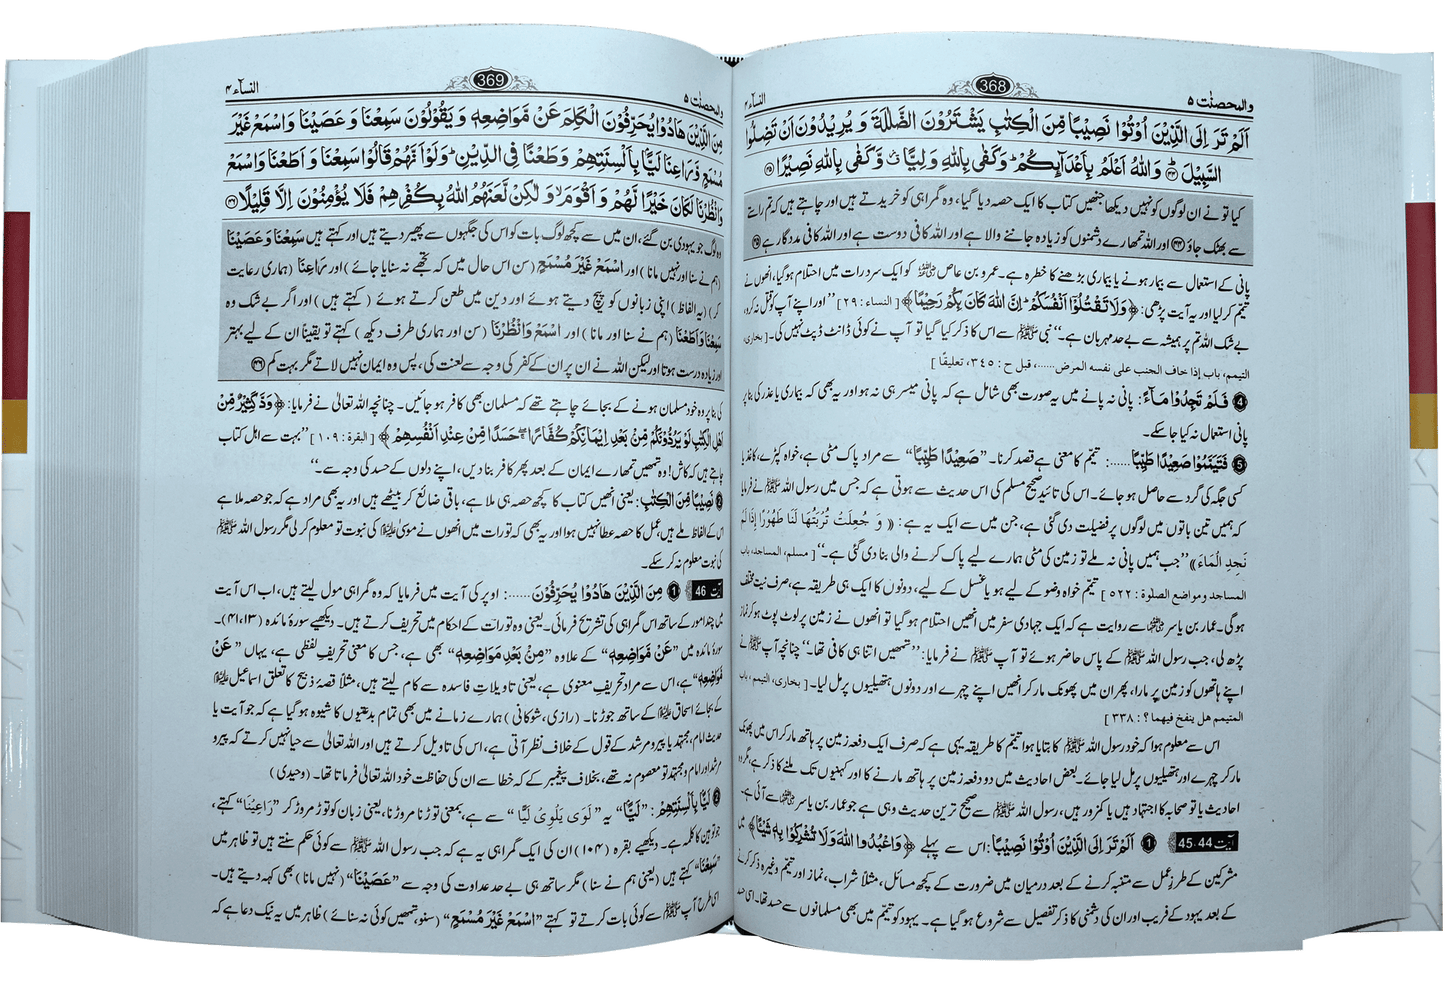 والمحصنٰت ۵
368
النساء ۴
اَلَمْ تَرَ اِلَى الَّذِيْنَ اُوْتُوْا نَصِيْبًا مِّنَ الْكِتٰبِ يَشْتَرُوْنَ الضَّلٰلَةَ وَ يُرِيْدُوْنَ اَنْ تَضِلُّوا
السَّبِيْلَ ۴۴ وَ اللّٰهُ اَعْلَمُ بِاَعْدَآىِٕكُمْ وَ كَفٰى بِاللّٰهِ وَلِيًّا وَّ كَفٰى بِاللّٰهِ نَصِيْرًا ۴۵
کیا تو نے ان لوگوں کو نہیں دیکھا جنھیں کتاب کا ایک حصہ دیا گیا، وہ گمراہی کو خریدتے ہیں اور چاہتے ہیں کہ تم راستے
سے بھٹک جاؤ ۴۴ اور اللہ تمھارے دشمنوں کو زیادہ جاننے والا ہے اور اللہ کافی دوست ہے اور اللہ کافی مددگار ہے ۴۵
پانی کے استعمال سے بیمار ہونے یا بیماری بڑھنے کا خطرہ ہے۔ عمرو بن عاص کو ایک سرد رات میں احتلام ہو گیا، انھوں نے
تیمم کر لیا اور یہ آیت پڑھی: ﴿وَ لَا تَقْتُلُوْۤا اَنْفُسَكُمْ اِنَّ اللّٰهَ كَانَ بِكُمْ رَحِيْمًا﴾ [النساء : ۲۹] ”اور اپنے آپ کو قتل نہ کرو،
بے شک اللہ تم پر ہمیشہ سے بے حد مہربان ہے۔“ نبی ﷺ سے اس کا ذکر کیا گیا تو آپ نے کوئی ڈانٹ ڈپٹ نہیں کی۔ [بخاری،
التيمم، باب إذا خاف الجنب على نفسه المرض......، قبل ح : ۳۴۵، تعليقًا]
4 فَلَمْ تَجِدُوْا مَآءً: پانی نہ پانے میں یہ صورت بھی شامل ہے کہ پانی میسر ہی نہ ہو اور یہ بھی کہ بیماری یا عذر کی بنا پر
پانی استعمال نہ کیا جا سکے۔
5 فَتَيَمَّمُوْا صَعِيْدًا طَيِّبًا......: تیمم کا معنی ہے قصد کرنا۔ ”صَعِيْدًا طَيِّبًا“ سے مراد پاک مٹی ہے، خواہ کپڑے، کاغذ یا
کسی جگہ کی گرد سے حاصل ہو جائے۔ اس کی تائید صحیح مسلم کی اس حدیث سے ہوتی ہے کہ جس میں رسول اللہ ﷺ نے فرمایا
کہ ہمیں تین باتوں میں لوگوں پر فضیلت دی گئی ہے، جن میں سے ایک یہ ہے: « وَ جُعِلَتْ تُرْبَتُهَا لَنَا طَهُوْرًا إِذَا لَمْ
نَجِدِ الْمَاءَ» ”جب ہمیں پانی نہ ملے تو زمین کی مٹی ہمارے لیے پاک کرنے والی بنا دی گئی ہے۔“ [ مسلم، المساجد، باب
المساجد ومواضع الصلوة : ۵۲۲ ] تیمم خواہ وضو کے لیے ہو یا غسل کے لیے، دونوں کا ایک ہی طریقہ ہے، صرف نیت مختلف
ہوگی۔ عمار بن یاسر سے روایت ہے کہ ایک جہادی سفر میں انھیں احتلام ہو گیا تو انھوں نے زمین پر لوٹ پوٹ ہو کر نماز
پڑھ لی، جب رسول اللہ ﷺ کے پاس حاضر ہوئے تو آپ ﷺ نے فرمایا: ”تمھیں اتنا ہی کافی تھا۔“ چنانچہ آپ نے
اپنے ہاتھوں کو زمین پر مارا، پھر ان میں پھونک مار کر انھیں اپنے چہرے اور دونوں ہتھیلیوں پر مل لیا۔ [ بخاری، التیمم، باب
المتيمم هل ينفخ فيهما؟ : ۳۳۸ ]
اس سے معلوم ہوا کہ خود رسول اللہ ﷺ کا بتایا ہوا تیمم کا طریقہ یہی ہے کہ صرف ایک دفعہ زمین پر ہاتھ مار کر اس میں پھونک
مار کر چہرے اور ہتھیلیوں پر مل لیا جائے۔ بعض احادیث میں دو دفعہ زمین پر ہاتھ مارنے کا اور کہنیوں تک ملنے کا ذکر ہے، مگر وہ
احادیث یا تو صحابہ کا اجتہاد ہیں یا کمزور ہیں، رسول اللہ ﷺ سے صحیح ترین حدیث وہی ہے جو عمار بن یاسر سے آئی ہے۔
آیت 45،44 1 اَلَمْ تَرَ اِلَى الَّذِيْنَ اُوْتُوْا نَصِيْبًا: اس سے پہلے ﴿وَ اعْبُدُوا اللّٰهَ وَ لَا تُشْرِكُوْا بِهٖ شَيْـًٔا﴾ میں
مشرکین کے طرزِ عمل سے متنبہ کرنے کے بعد درمیان میں ضرورت کے کچھ مسائل، مثلاً شراب، نماز اور تیمم وغیرہ ذکر کرنے
کے بعد یہود کے فریب اور ان کی دشمنی کا ذکر تفصیل سے شروع ہو گیا ہے۔ یہود کو تیمم میں بھی مسلمانوں سے حسد تھا۔ اسی حسد
والمحصنٰت ۵
369
النساء ۴
مِنَ الَّذِيْنَ هَادُوْا يُحَرِّفُوْنَ الْكَلِمَ عَنْ مَّوَاضِعِهٖ وَ يَقُوْلُوْنَ سَمِعْنَا وَ عَصَيْنَا وَ اسْمَعْ غَيْرَ
مُسْمَعٍ وَّ رَاعِنَا لَيًّۢا بِاَلْسِنَتِهِمْ وَ طَعْنًا فِي الدِّيْنِ وَ لَوْ اَنَّهُمْ قَالُوْا سَمِعْنَا وَ اَطَعْنَا وَ اسْمَعْ
وَ انْظُرْنَا لَكَانَ خَيْرًا لَّهُمْ وَ اَقْوَمَ وَ لٰكِنْ لَّعَنَهُمُ اللّٰهُ بِكُفْرِهِمْ فَلَا يُؤْمِنُوْنَ اِلَّا قَلِيْلًا ۴۶
وہ لوگ جو یہودی بن گئے، ان میں سے کچھ لوگ بات کو اس کی جگہوں سے پھیر دیتے ہیں اور کہتے ہیں سَمِعْنَا وَ عَصَيْنَا
(ہم نے سنا اور نہیں مانا) اور اسْمَعْ غَيْرَ مُسْمَعٍ (سن اس حال میں کہ تجھے نہ سنایا جائے) اور رَاعِنَا (ہماری رعایت
کر) (یہ الفاظ) اپنی زبانوں کو پیچ دیتے ہوئے اور دین میں طعن کرتے ہوئے (کہتے ہیں) اور اگر بے شک وہ
سَمِعْنَا وَ اَطَعْنَا (ہم نے سنا اور مانا) اور اسْمَعْ وَ انْظُرْنَا (سن اور ہماری طرف دیکھ) کہتے تو یقیناً ان کے لیے بہتر
اور زیادہ درست ہوتا اور لیکن اللہ نے ان پر ان کے کفر کی وجہ سے لعنت کی، پس وہ ایمان نہیں لاتے مگر بہت کم ۴۶
کی بنا پر وہ خود مسلمان ہونے کے بجائے چاہتے تھے کہ مسلمان بھی کافر ہو جائیں۔ چنانچہ اللہ تعالیٰ نے فرمایا: ﴿وَدَّ كَثِيْرٌ مِّنْ
اَهْلِ الْكِتٰبِ لَوْ يَرُدُّوْنَكُمْ مِّنْ بَعْدِ اِيْمَانِكُمْ كُفَّارًا حَسَدًا مِّنْ عِنْدِ اَنْفُسِهِمْ﴾ [البقرة : ۱۰۹] ”بہت سے اہل کتاب
چاہتے ہیں کہ کاش! وہ تمھیں تمھارے ایمان کے بعد پھر کافر بنا دیں، اپنے دلوں کے حسد کی وجہ سے۔“
2 نَصِيْبًا مِّنَ الْكِتٰبِ: یعنی انھیں کتاب کا کچھ حصہ ہی ملا ہے، باقی ضائع کر بیٹھے ہیں اور یہ بھی مراد ہے کہ جو حصہ ملا ہے
اس کے الفاظ ملے ہیں، عمل کا حصہ عطا نہیں ہوا اور یہ بھی کہ تورات میں انھوں نے موسیٰ کی نبوت تو معلوم کر لی مگر رسول اللہ ﷺ
کی نبوت معلوم نہ کر سکے۔
آیت 46 1 مِنَ الَّذِيْنَ هَادُوْا يُحَرِّفُوْنَ......: اوپر کی آیت میں فرمایا کہ وہ گمراہی مول لیتے ہیں، اب اس آیت
میں چند امور کے ساتھ اس گمراہی کی تشریح فرمائی۔ یعنی وہ تورات کے احکام میں تحریف کرتے ہیں۔ دیکھیے سورۂ مائدہ (۴۱،۱۳)۔
سورۂ مائدہ میں ”عَنْ مَّوَاضِعِهٖ“ کے علاوہ ”مِنْ بَعْدِ مَوَاضِعِهٖ“ بھی ہے، جس کا معنی تحریف لفظی ہے، یہاں ”عَنْ
مَّوَاضِعِهٖ“ ہے، اس سے مراد تحریف معنوی ہے، یعنی تاویلاتِ فاسدہ سے کام لیتے ہیں، مثلاً قصۂ ذبیح کا تعلق اسماعیل
کے بجائے اسحاق کے ساتھ جوڑنا۔ (رازی، شوکانی) ہمارے زمانے میں بھی تمام بدعتیوں کا شیوہ ہو گیا ہے کہ جو آیت یا
حدیث امام، مجتہد یا پیر و مرشد کے قول کے خلاف نظر آتی ہے، اس کی تاویل کرتے ہیں اور اللہ تعالیٰ سے حیا نہیں کرتے کہ پیر و
مرشد اور امام و مجتہد تو معصوم نہ تھے، بخلاف پیغمبر کے کہ خطا سے ان کی حفاظت خود اللہ تعالیٰ فرماتا تھا۔ (وحیدی)
2 لَيًّۢا بِاَلْسِنَتِهِمْ: ”لَيًّا“ یہ ”لَوٰى يَلْوِيْ لَيًّا“ سے ہے، بمعنی توڑنا مروڑنا، یعنی زبان کو توڑ مروڑ کر ”رَاعِيْنَا“ کہتے،
جو توہین کا کلمہ ہے۔ دیکھیے بقرہ (۱۰۴) ان کی ایک گمراہی یہ ہے کہ جب رسول اللہ ﷺ سے کوئی حکم سنتے ہیں تو ظاہر میں
”سَمِعْنَا“ کہتے ہیں (یعنی ہم نے سنا) مگر ساتھ ہی بے حد عداوت کی وجہ سے ”عَصَيْنَا“ (نہیں مانا) بھی کہہ دیتے ہیں۔
اسی طرح آپ ﷺ سے کوئی بات کرتے تو کہتے ”اسْمَعْ غَيْرَ مُسْمَعٍ“ (سنو، تمھیں کوئی نہ سنائے) ظاہر میں یہ نیک دعا ہے کہ